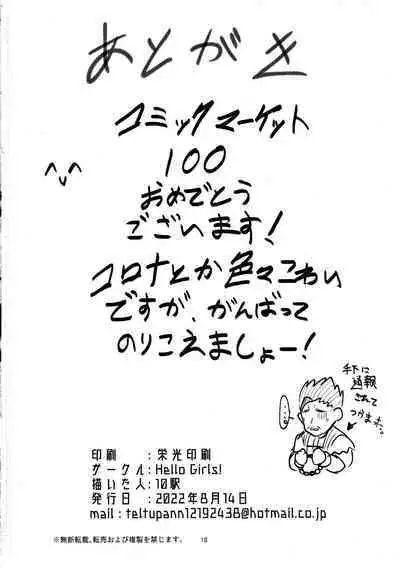 あとがき
コミックマーケット
100
おめでとう
ございます!
コロナとか色々こわい
ですが、がんばって
のりこえましょー!
手下に
通報
されて
つかまった。
....
印刷 : 栄光印刷
サークル : Hello Girls!
描いた人 : 10駅
発行日 : 2022年8月14日
mail : teltupann12192438@hotmail.co.jp
※無断転載、転売および複製を禁じます。
18